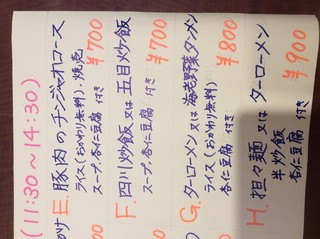 (11:30～14:30)
E. 豚肉のチンジャオロース
ライス(おかわり無料)・焼売
スープ、杏仁豆腐 付き
¥700
F. 四川炒飯 又は 五目炒飯
スープ、杏仁豆腐 付き
¥700
G. ターローメン 又は 海老野菜タンメン
ライス(おかわり無料)
杏仁豆腐 付き
¥800
H. 担々麺 又は ターローメン
半炒飯
杏仁豆腐 付き
¥900